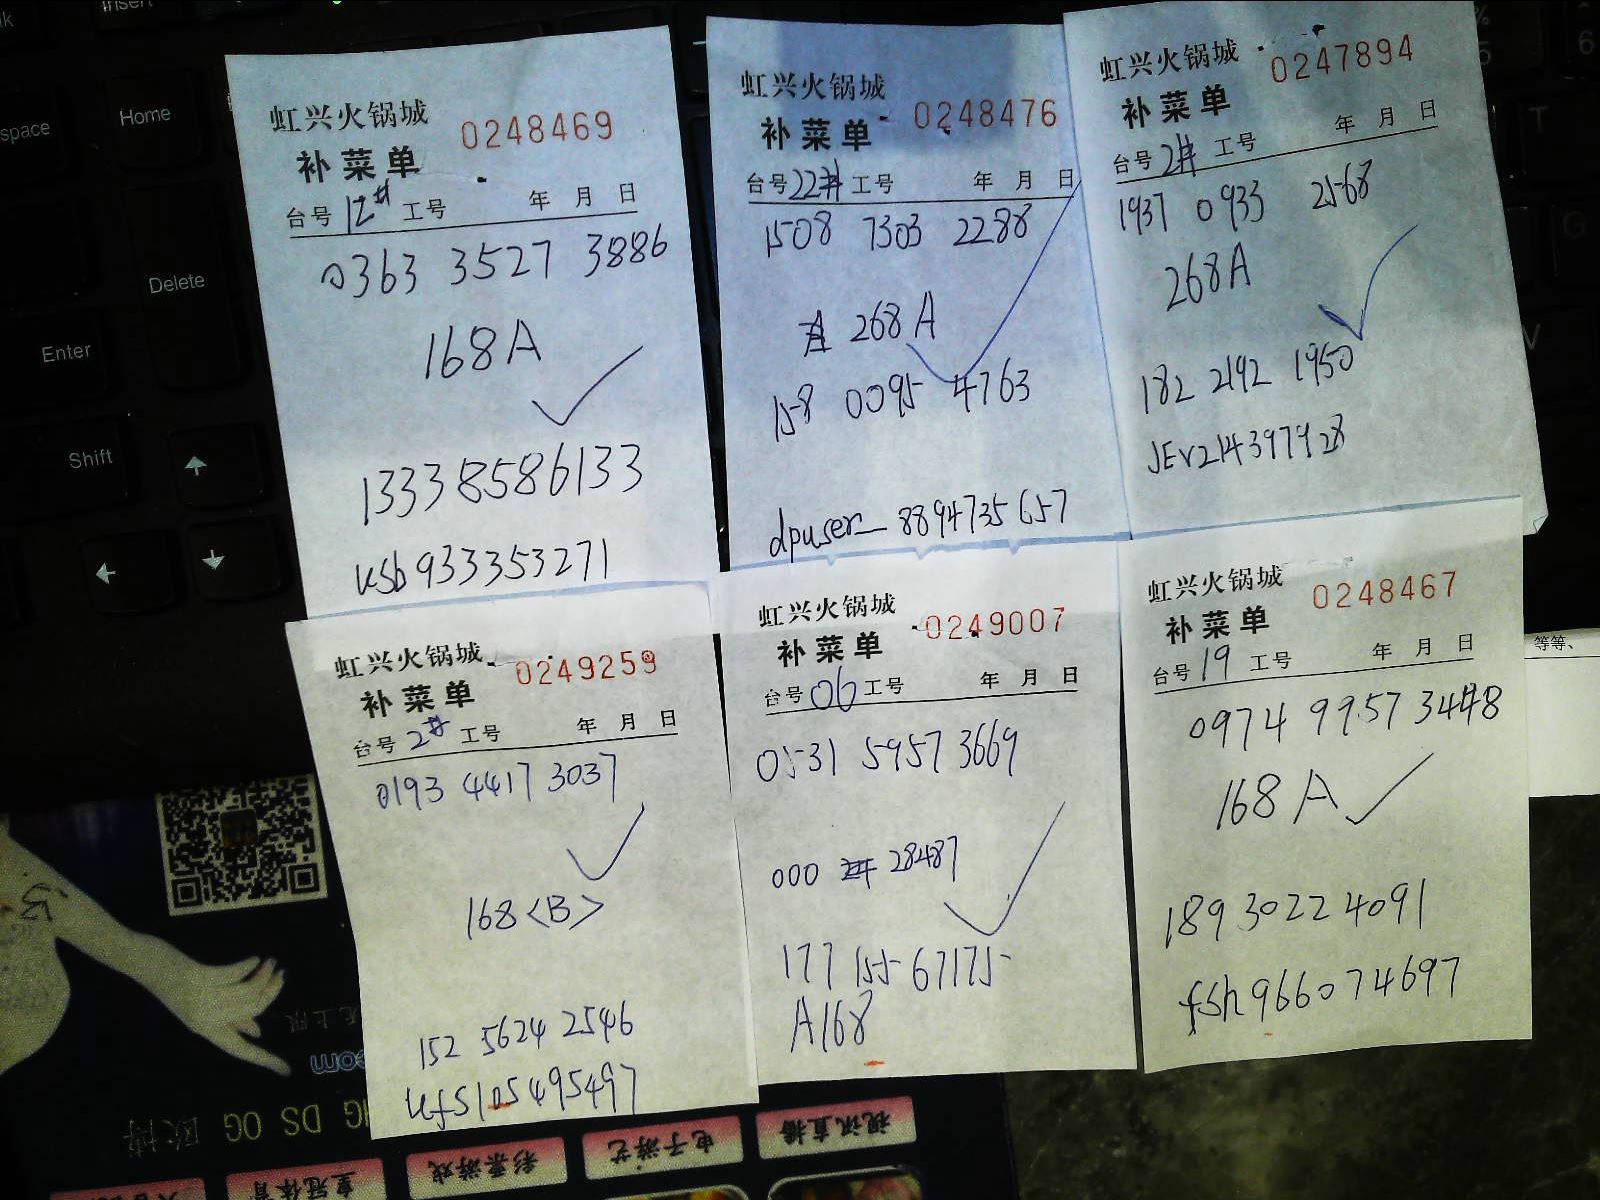 Insert
Home
space
Delete
Enter
Shift
虹兴火锅城
0248469
补菜单
台号 12# 工号 年 月 日
0363 3527 3886
168A
13338586133
ksb933353271
虹兴火锅城
0248476
补菜单
台号 22# 工号 年 月 日
1508 7303 2288
268A
158 0095 4763
dpuser_8894735657
虹兴火锅城
0247894
补菜单
台号 2# 工号 年 月 日
1937 0933 2568
268A
182 2192 1950
JEV214397928
虹兴火锅城
0249259
补菜单
台号 2# 工号 年 月 日
0193 4417 3037
168<B>
152 5624 2546
kfs105495497
虹兴火锅城
0249007
补菜单
台号 06 工号 年 月 日
0531 5957 3669
000 28487
177 155 67175
A168
虹兴火锅城
0248467
补菜单
台号 19 工号 年 月 日
0974 9957 3448
168A
189 3022 4091
fsh966074697
等等、
无上限
com
DS OG 欧博
皇冠体育
彩票游戏
电子游艺
视讯直播